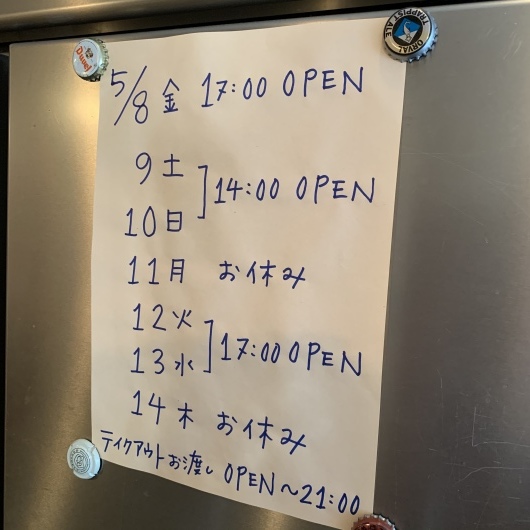 5/8 金 17:00 OPEN
9 土
14:00 OPEN
10 日
11 月 お休み
12 火
17:00 OPEN
13 水
14 木 お休み
テイクアウトお渡し OPEN〜21:00
Duvel
ORVAL
TRAPPIST ALE